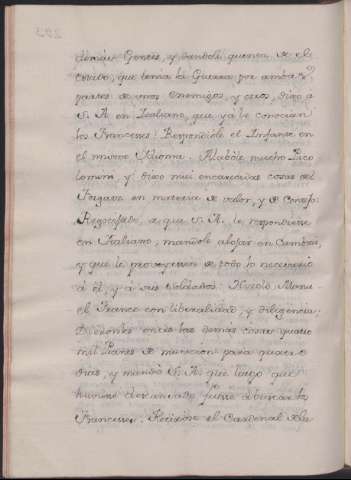 demás Gentes, y dandole quenta de el
estado, que tenia la Guerra por ambas
partes de unos Enemigos, y otros, dixo a
S. A. en Italiano, que ya le conocian
los Franceses: Respondiole el Infante en
el mismo Ydioma. Alabóle mucho Pico
lomini, y dixo mui encarecidas cosas del
en materia de valor, y de Consejo:
a que S. A. le respondiese
en Italiano, mandóle alojar en Cambrai,
y que le proveyesen de todo lo necesario
á él, y á sus Soldados:
el Franco con liberalidad, y diligencia;
entre las demás cosas quatro
mil Panes de municion para quatro
dias, y mandó S. A. que luego que
huviese descansado, fuese a buscar los
Franceses. el Cardenal